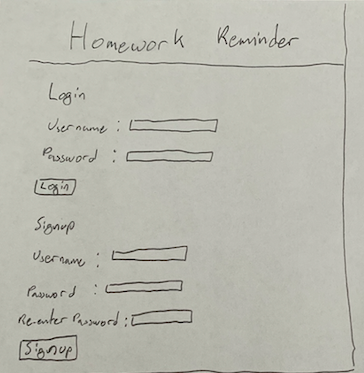 Homework Reminder
Login
Username :
Password :
Login
Signup
Username :
Password :
Re-enter Password :
Signup